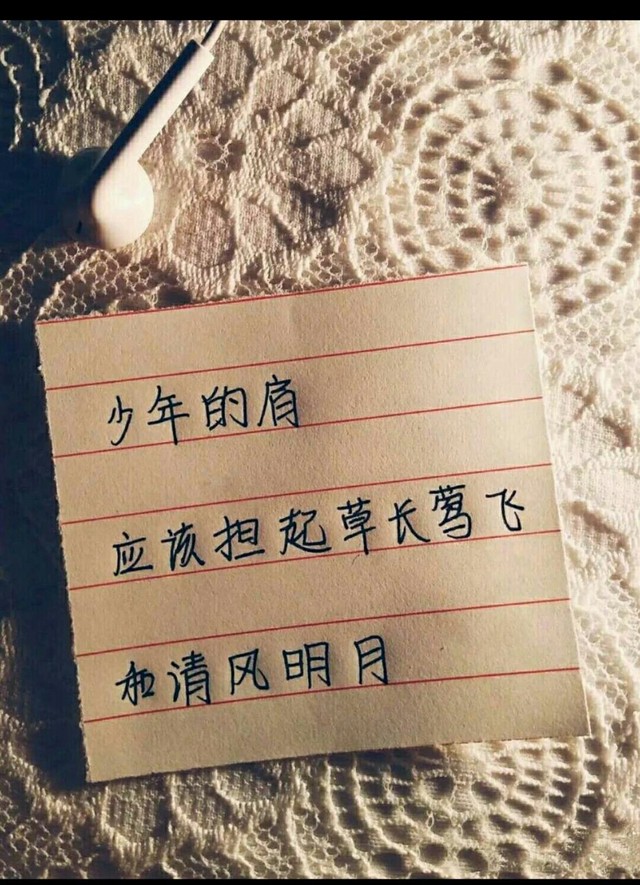 少年的肩
应该担起草长莺飞
和清风明月